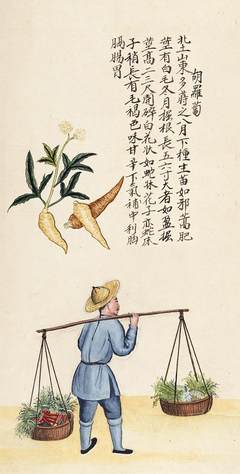 胡羅蔔
北土山東多蒔之八月下種生苗如邪蒿肥
莖有白毛冬月掘根長五六寸大者如盈握
莖高二三尺開碎白花狀如蛇牀花子亦如蛇牀
子稍長有毛褐色味甘辛下氣補中利胸
膈腸胃